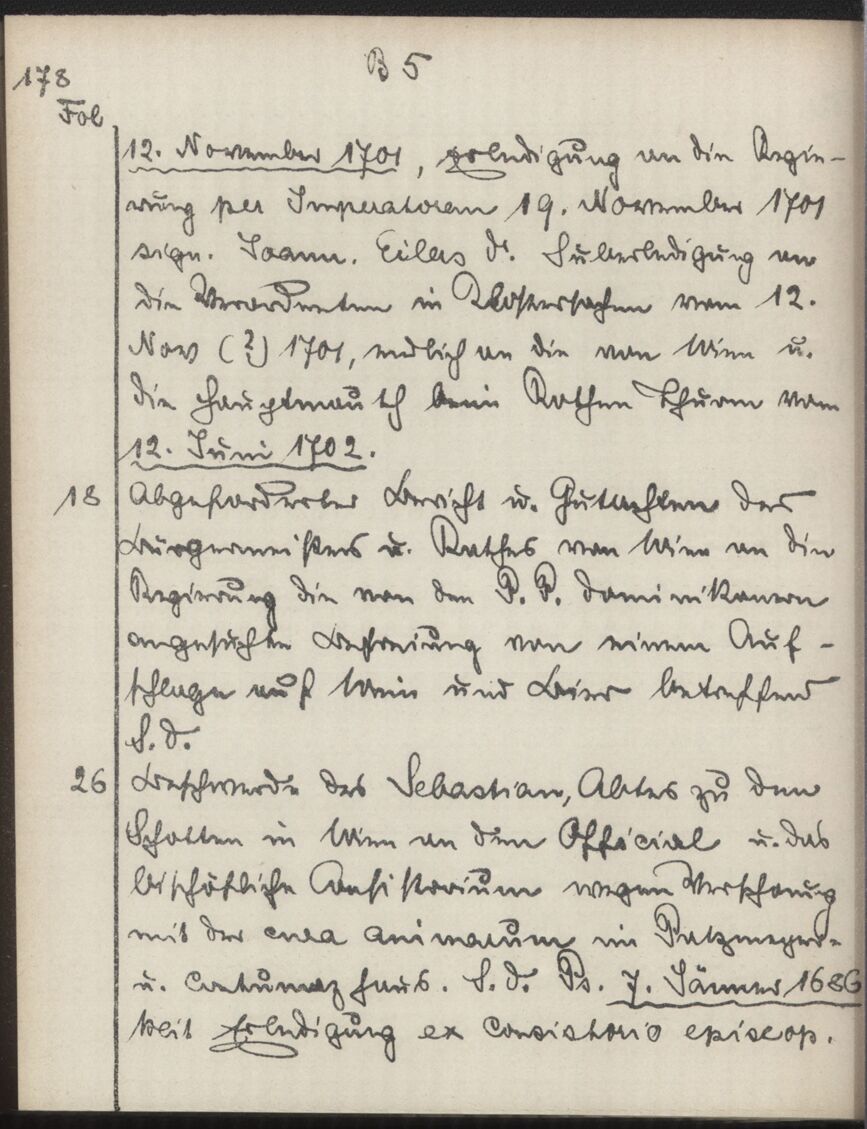 B 5
178
Fol
12. November 1701, Erledigung an die Regie-
rung per Imperatorem 19. November 1701
sign. Joann. Eilers Dr. Hub erledigung an
die Verordneten in Klostersachen vom 12.
Nov (?) 1701, endlich an die von Wien u.
die Hauptmauth beim Rothen Thurm vom
12. Juni 1702.
18 Abgeforderter Bericht u. Gutachten des
Bürgermeisters u. Rathes von Wien an die
Regierung die von den P. P. Dominikanern
angesuchte Befreiung von einem Auf-
schlage auf Wein und Bier betreffend
S. d.
26 Beschwerde des Sebastian, Abtes zu den
Schotten in Wien an den Official u. das
bischöfliche Consistorium wegen Versehung
mit der cura animarum im Patzmeyer-
u. Contumazhaus. S. d. Ps. 7. Jänner 1686
Mit Erledigung ex Consistorio episcop.